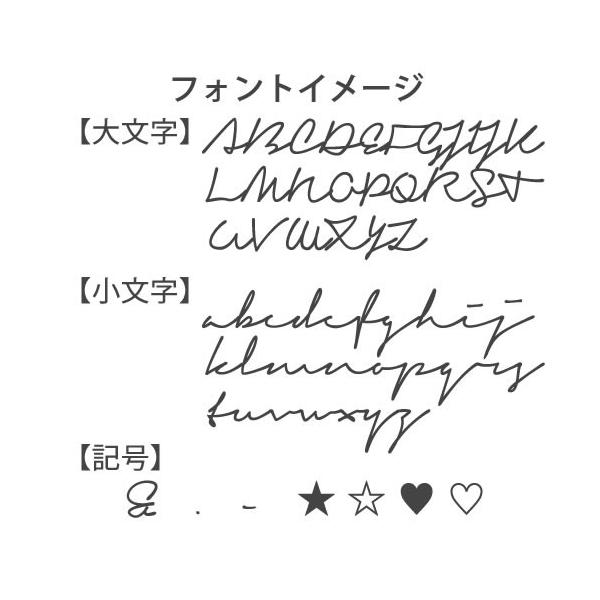 フォントイメージ
【大文字】ABCDEFGHIJK
LMNOPQRST
UVWXYZ
【小文字】abcdefghij
klmnopqrs
tuvwxyz
【記号】
& . - ★ ☆ ♥ ♡